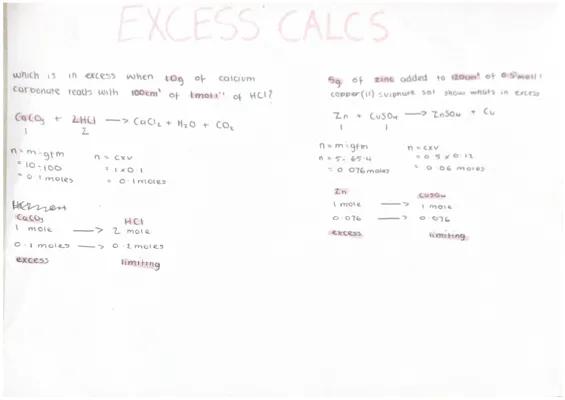 EXCESS CALCS
which is in excess when 10g of calcium
carbonate reacts with 100cm³ of 1moll⁻¹ of HCl?
CaCO₃ + 2HCl —> CaCl₂ + H₂O + CO₂
1 2
n = m÷gfm n = cxv
= 10÷100 = 1x0.1
= 0.1 moles = 0.1 moles
CaCO₃ HCl
1 mole —> 2 mole
0.1 moles —> 0.2 moles
excess limiting
5g of zinc added to 120cm³ of 0.5moll⁻¹
copper(II) sulphate sol show whats in excess
Zn + CuSO₄ —> ZnSO₄ + Cu
1 1
n = m÷gfm n = cxv
n = 5÷65.4 = 0.5 x 0.12
= 0.076 moles = 0.06 moles
Zn CuSO₄
1 mole —> 1 mole
0.076 —> 0.076
excess limiting